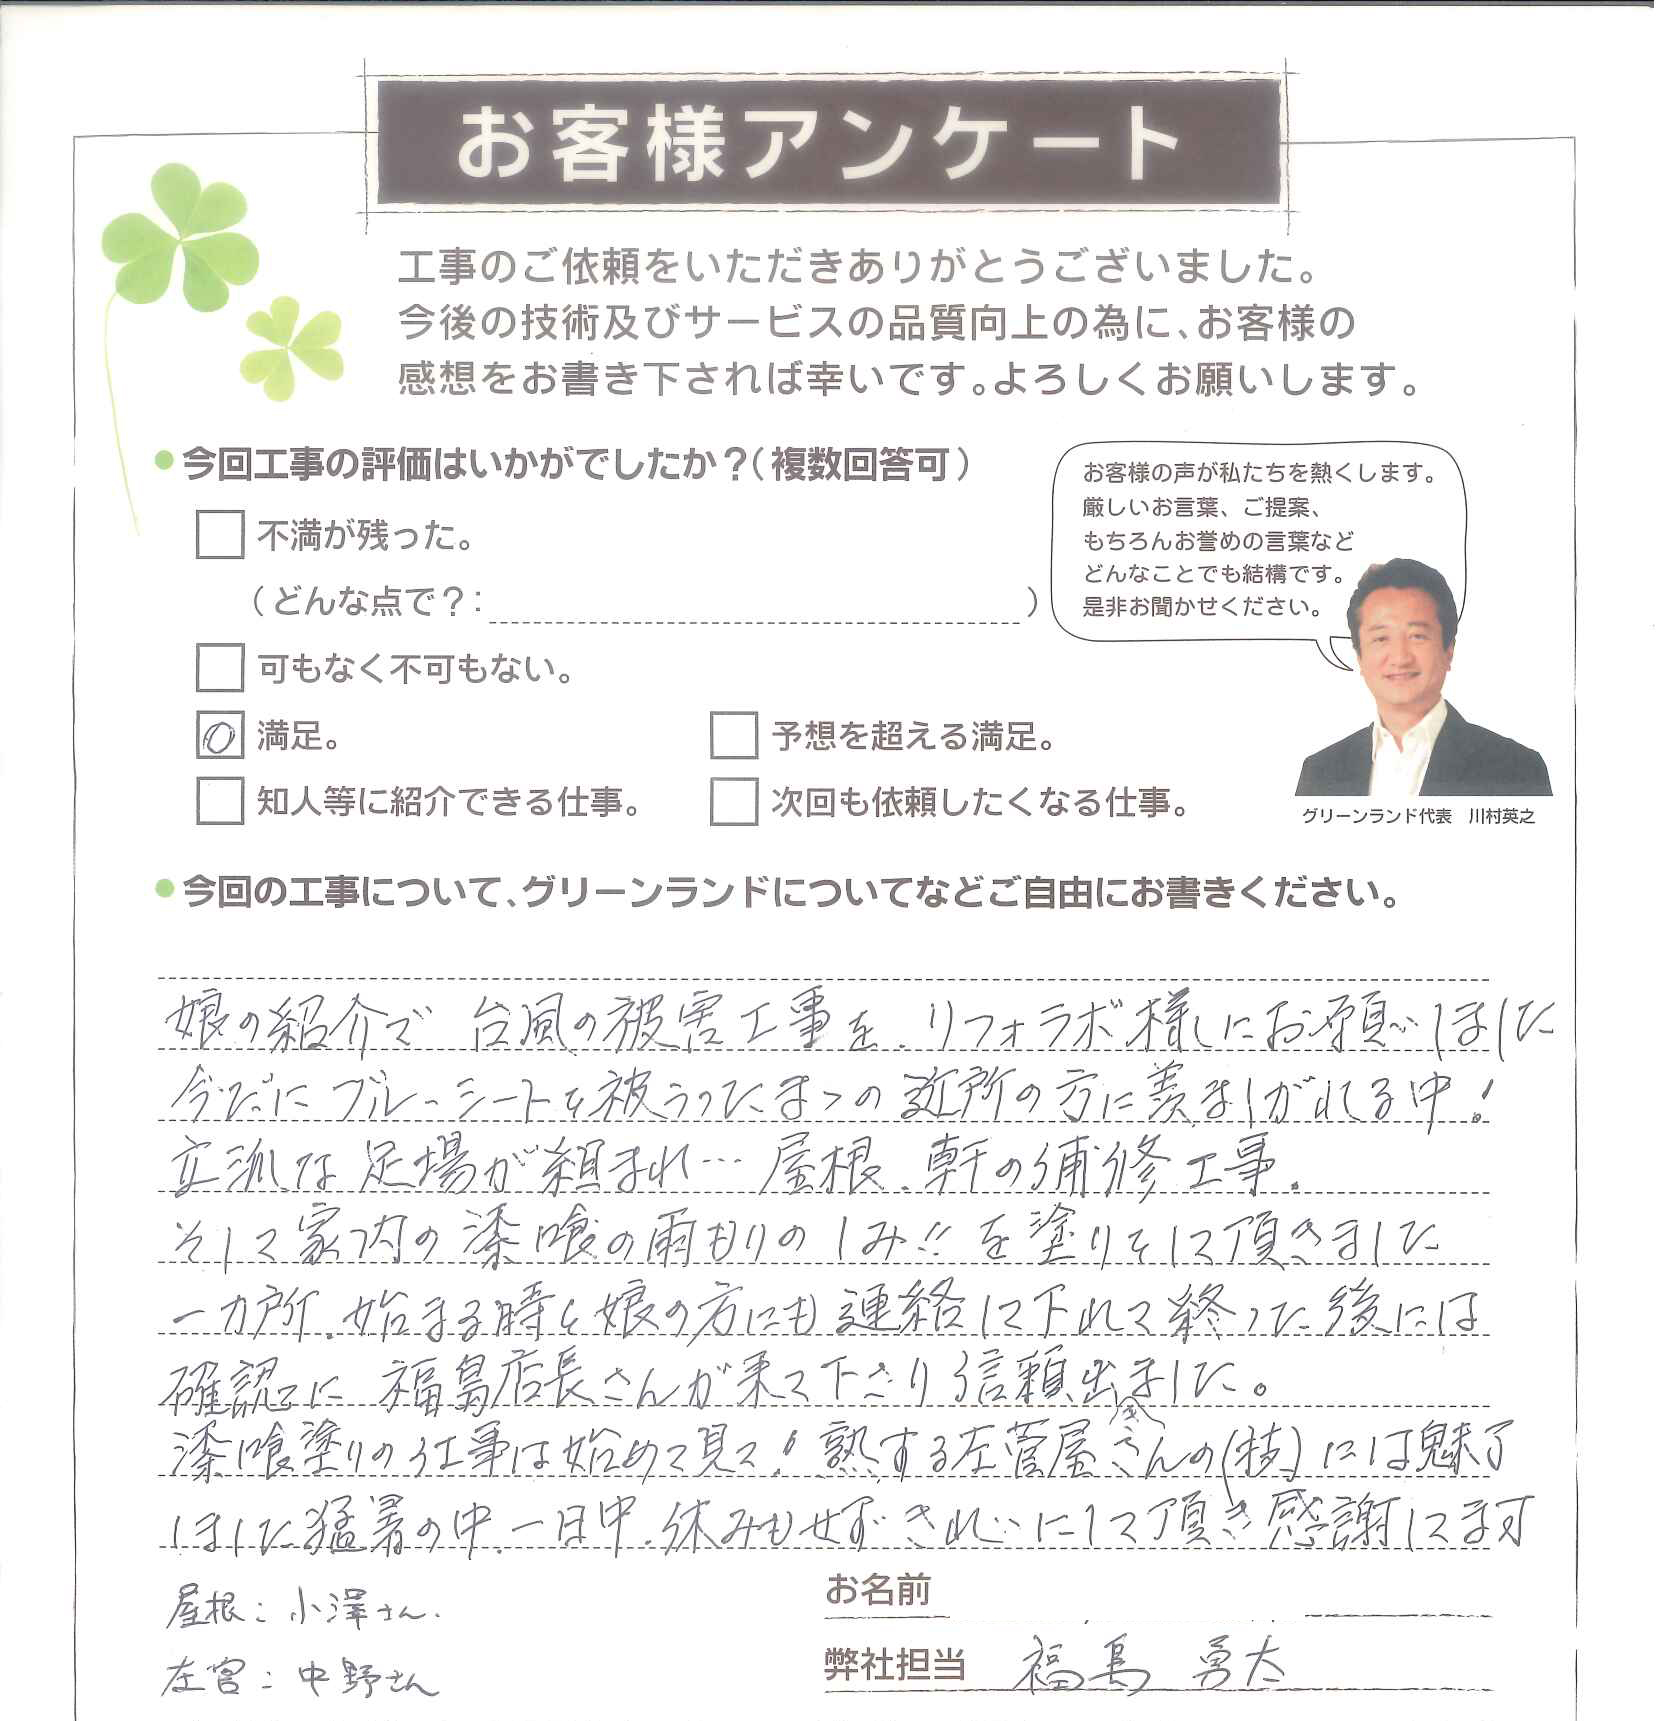 お客様アンケート
工事のご依頼をいただきありがとうございました。
今後の技術及びサービスの品質向上の為に、お客様の
感想をお書き下されば幸いです。よろしくお願いします。
今回工事の評価はいかがでしたか？（複数回答可）
不満が残った。
（どんな点で？：　）
可もなく不可もない。
○ 満足。
予想を超える満足。
知人等に紹介できる仕事。
次回も依頼したくなる仕事。
お客様の声が私たちを熱くします。
厳しいお言葉、ご提案、
もちろんお誉めの言葉など
どんなことでも結構です。
是非お聞かせください。
グリーンランド代表　川村英之
今回の工事について、グリーンランドについてなどご自由にお書きください。
娘の紹介で 台風の被害工事を、リフォラボ様にお願いしました
今だに ブルーシートを被うったまゝの 近所の方に羨ましがれる中！
立派な 足場が組まれ… 屋根、軒の補修工事.
そして家内の漆喰の雨もりのしみ!!を塗りそして頂きました
一カ所、始まる時も娘の方にも連絡して下れて終った後には
確認に 福島店長さんが来て下さり信頼出来ました。
漆喰塗りの仕事は始めて見て！熟する左菅屋さんの(技)には魅了
しました猛暑の中、一日中、休みもせず きれいにして頂き感謝してます
屋根：小澤さん.
左官：中野さん
お名前
弊社担当 福島 勇太